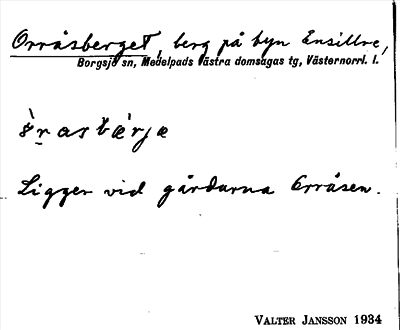 Orråsberget, berg på byn Ensillre,
Borgsjö sn, Medelpads västra domsagas tg, Västernorrl. l.
Ligger vid gårdarna Orråsen.
VALTER JANSSON 1934